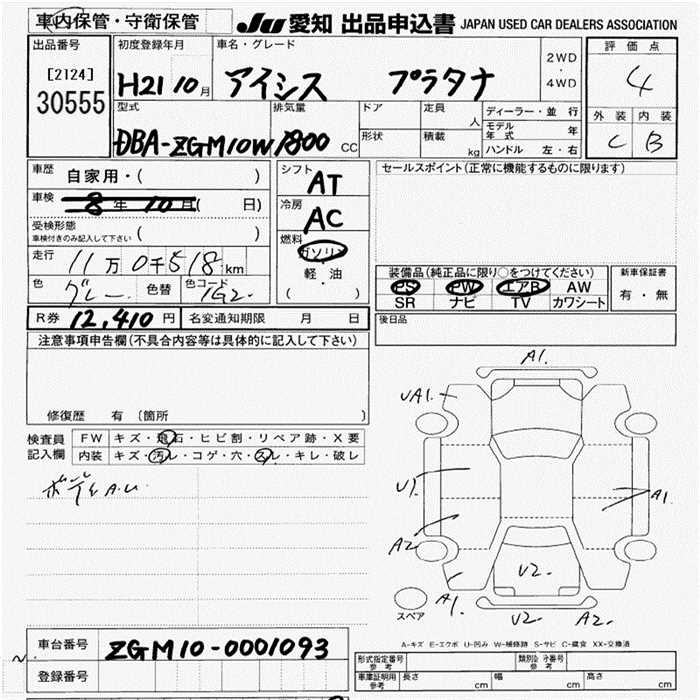 車内保管・守衛保管
JU 愛知 出品申込書 JAPAN USED CAR DEALERS ASSOCIATION
出品番号
[2124]
30555
初度登録年月
H21 10月
車名・グレード
アイシス プラタナ
2WD
・
4WD
評価点
4
外装 内装
C B
型式
DBA-ZGM10W
排気量
1800 CC
ドア
形状
定員 人
積載 kg
ディーラー・並行
モデル年式 年
ハンドル 左・右
車歴 自家用・( )
車検 8年10月( 日)
受検形態
車検付きのみ記入して下さい ( )
走行 11万0千518km
色 グレー 色替 色コード 1G2
シフト AT
冷房 AC
燃料
ガソリン
軽・油
( )
セールスポイント(正常に機能するものに限ります)
装備品(純正品に限り○をつけてください)
PS PW エアB AW
SR ナビ TV カワシート
新車保証書
有・無
R券 12,410円 名変通知期限 月 日
後日品
注意事項申告欄(不具合内容等は具体的に記入して下さい)
修復歴 有 (箇所 )
検査員記入欄
FW キズ・飛石・ヒビ割・リペア跡・X要
内装 キズ・汚レ・コゲ・穴・スレ・キレ・破レ
ボディA.U
A1.
UA1.
U1
A1
A2
U2
A1
U2
A2
スペア
A-キズ E-エクボ U-凹み W-補修跡 S-サビ C-腐食 XX-交換済
車台番号 ZGM10-0001093
登録番号
形式指定番号 参考
類別区分番号 参考
車庫証明用 参考 長さ cm 幅 cm 高さ cm